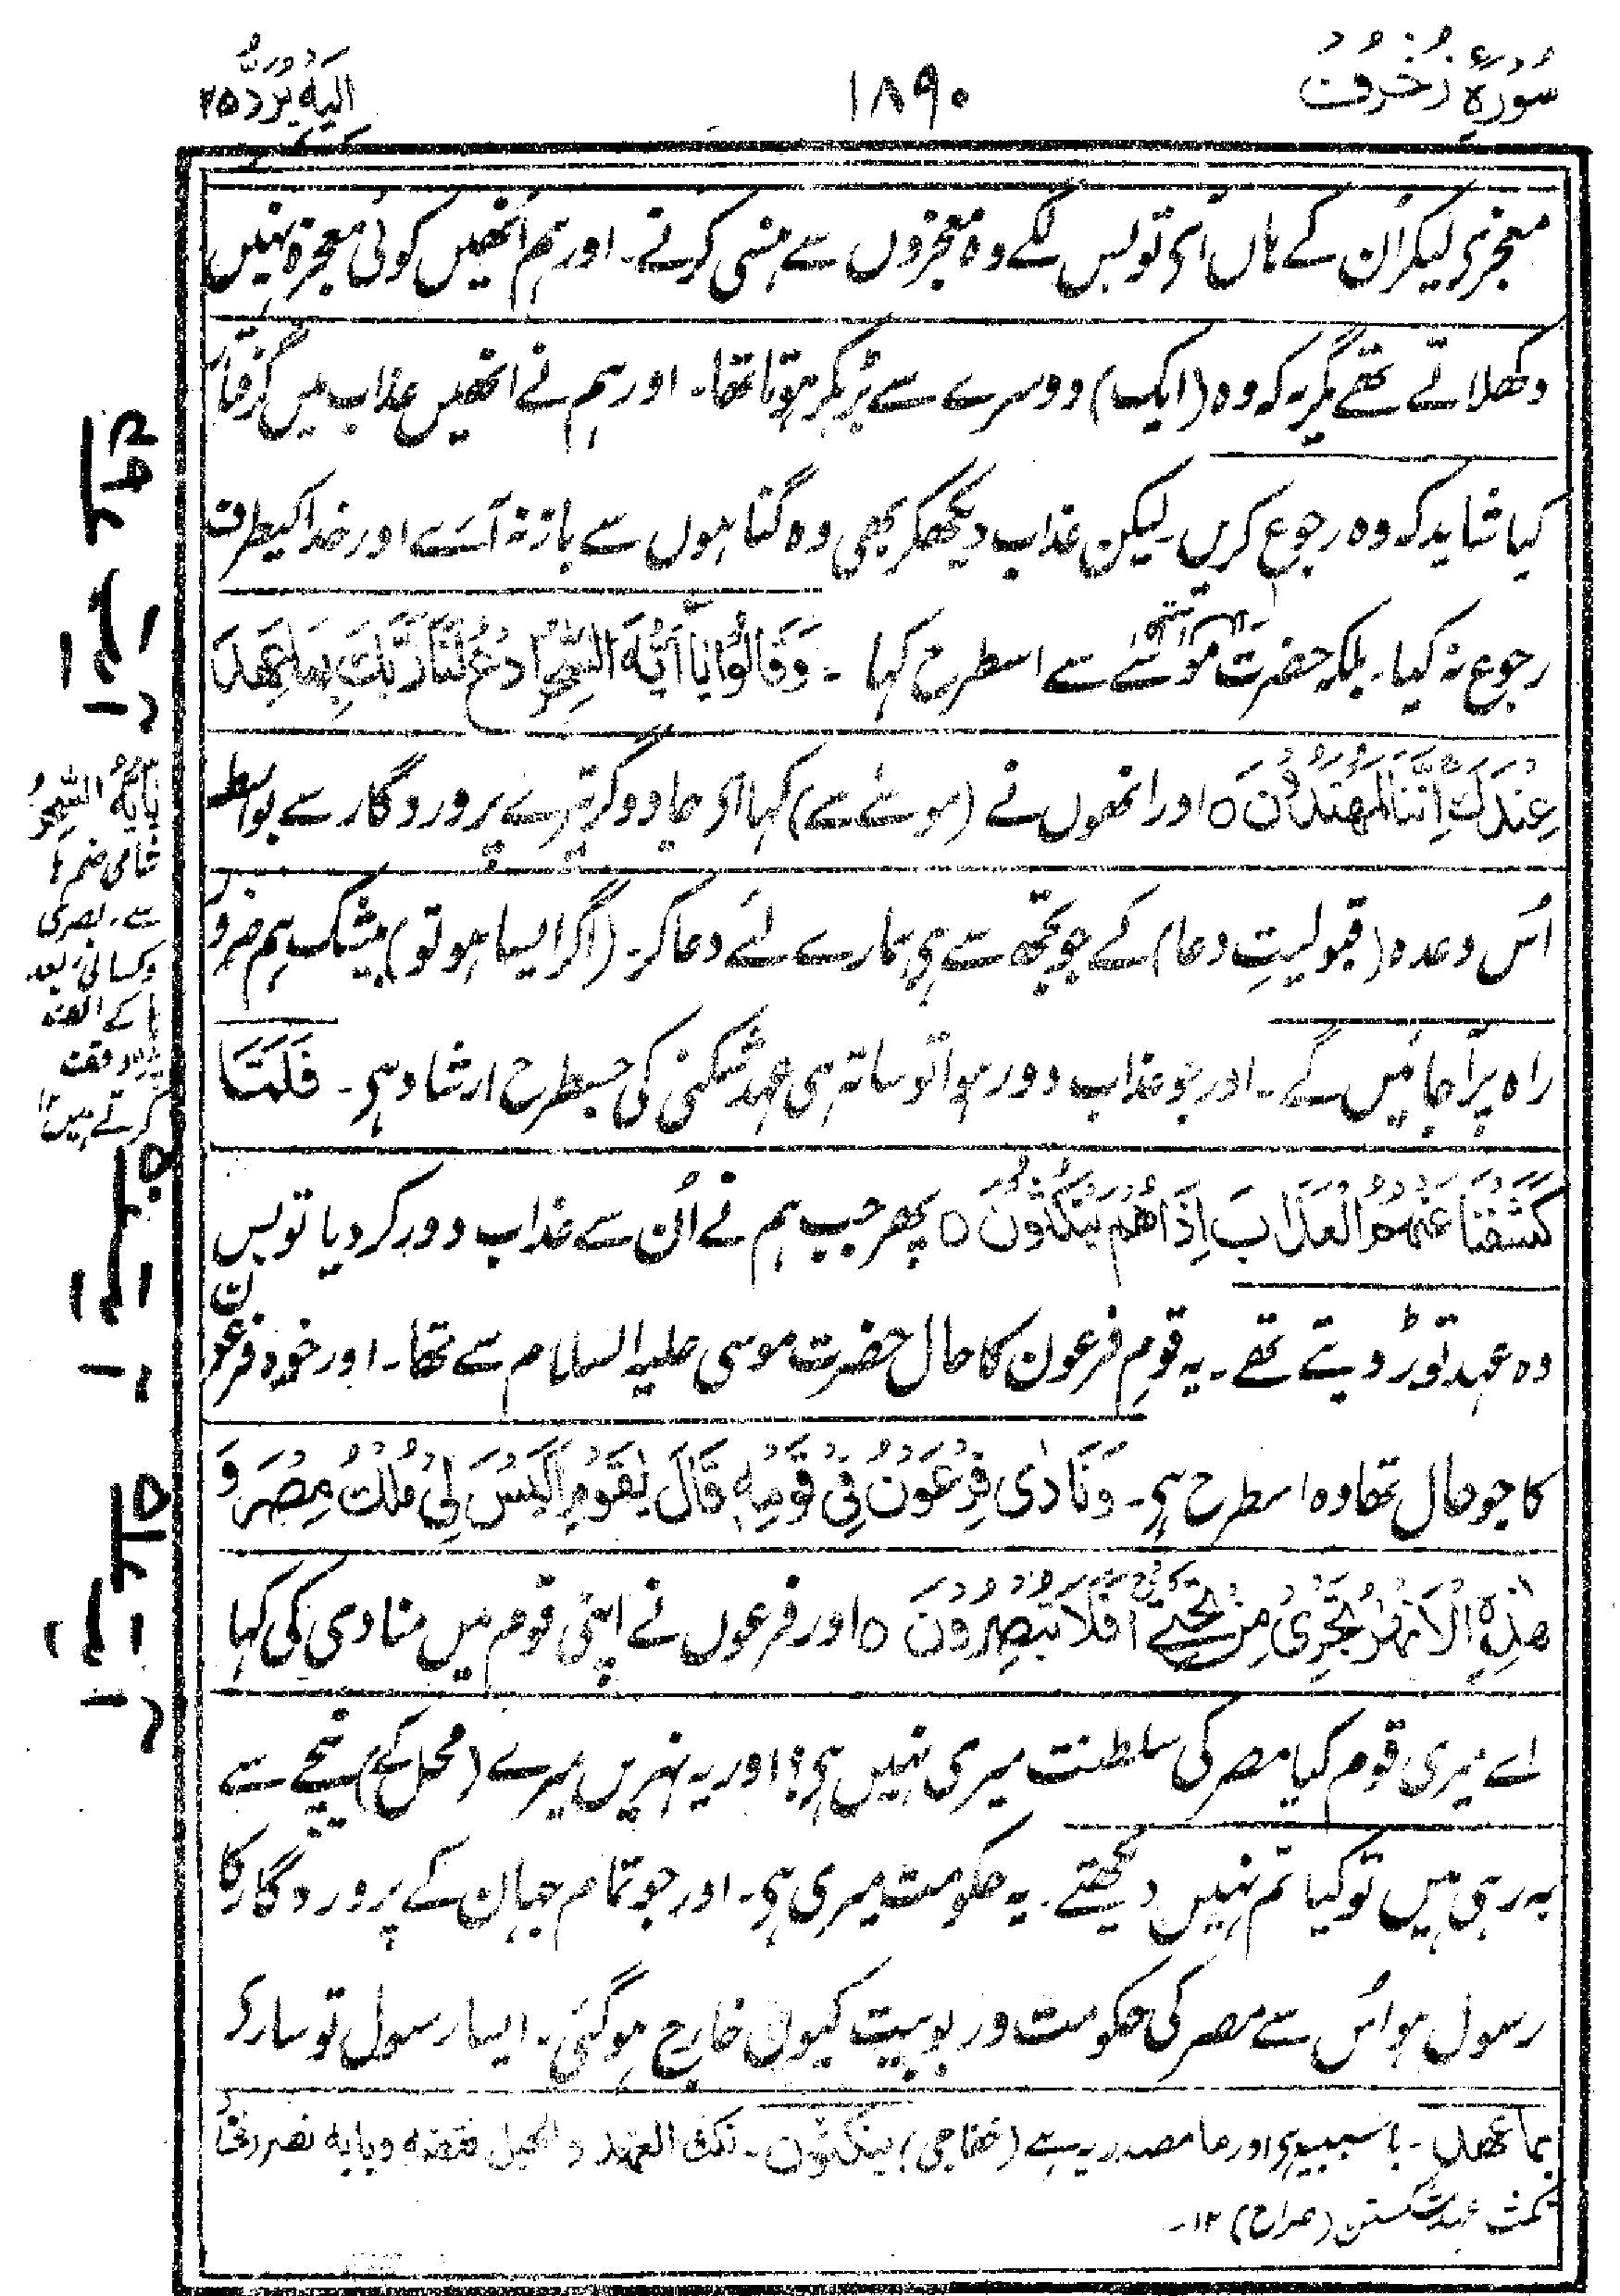 سُوۡرَۃُ زُخۡرُف
۱۸۹۰
اِلَیۡہِ یُرَدُّ ۲۵
معجزی لیکر اُن کے ہاں آئی تو بس لگے وہ معجزوں سے ہنسی کرنے۔ اور ہم اُنھیں کوئی معجزہ نہیں
دکھلاتے تھے مگر یہ کہ وہ (ایک) دوسرے سے بڑہکر ہوتا تھا۔ اور ہم نے انھیں عذاب میں گرفتار
کیا شاید کہ وہ رجوع کریں۔ لیکن عذاب دیکھکر بھی وہ گناہوں سے باز نہ آئے اور خدا کیطرف
رجوع نہ کیا۔ بلکہ حضرت موسٰے سے اسطرح کہا ۔ وَقَالُوۡا یٰۤاَیُّہَ السّٰحِرُ ادۡعُ لَنَا رَبَّکَ بِمَا عَہِدَ
عِنۡدَکَ اِنَّنَا لَمُہۡتَدُوۡنَ ○ اور انھوں نے (موسٰے سے) کہا او جادوگر تیرے پروردگار سے بواسطہ
اُس وعدہ (قبولیتِ دعا) کے جو تجھ سے ہی ہمارے لئے دعا کر۔ (اگر ایسا ہو تو) بیشک ہم ضرور
راہ پر آجائیں گے۔ اور جو عذاب دور ہوا تو ساتہ ہی عہد شکنی کی جسطرح ارشاد ہی۔ فَلَمَّا
کَشَفۡنَا عَنۡہُمُ الۡعَذَابَ اِذَا ہُمۡ یَنۡکُثُوۡنَ ○ پھر جب ہم نے اُن سے عذاب دور کر دیا تو بس
وہ عہد توڑ دیتے تھے۔ یہ قومِ فرعون کا حال حضرت موسی علیہ السلام سے تھا۔ اور خود فرعون
کا جو حال تھا وہ اسطرح ہی۔ وَنَادٰی فِرۡعَوۡنُ فِیۡ قَوۡمِہٖ قَالَ یٰقَوۡمِ اَلَیۡسَ لِیۡ مُلۡکُ مِصۡرَ وَ
ہٰذِہِ الۡاَنۡہٰرُ تَجۡرِیۡ مِنۡ تَحۡتِیۡ اَفَلَا تُبۡصِرُوۡنَ ○ اور فرعون نے اپنی قوم میں منادی کی کہا
اے میری قوم کیا مصر کی سلطنت میری نہیں ہی؟ اور یہ نہریں میرے (محل کے) نیچے سے
بہ رہی ہیں تو کیا تم نہیں دیکھتے۔ یہ حکومت میری ہی۔ اور جو تمام جہان کے پروردگار کا
رسول ہو اُس سے مصر کی حکومت و ربوبیت کیوں خارج ہوگئی۔ ایسا رسول تو ساری
بما عھد۔ با سببیہ ہی اور ما مصدریہ ہے (خفاجی) ینکثون۔ نکث العہد و الحبل نقضہ وبابہ نصر
نکث عہد شکستن (صراح) ۱۲۔
یٰاَیُّہُ السّٰحِرُ
شامی ضم ہا
سے۔ بصری
وکسائی بعد
ہا کے الف
پر وقف
کرتے ہیں ۱۲